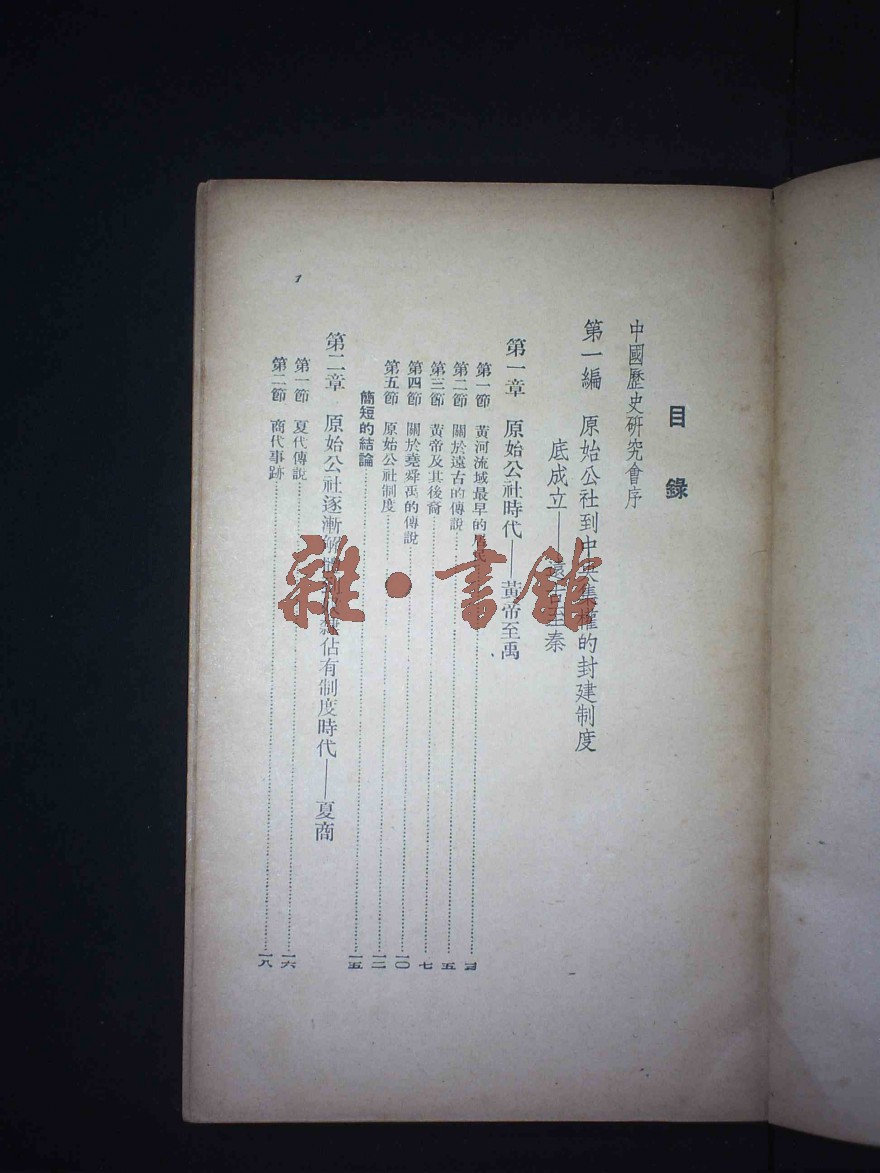 目錄
中國歷史研究會序
第一編 原始公社到中央集權的封建制度
底成立——遠古至秦
第一章 原始公社時代——黃帝至禹
第一節 黃河流域最早的居民
第二節 關於遠古的傳說 五
第三節 黃帝及其後裔 七
第四節 關於堯舜禹的傳說 一〇
第五節 原始公社制度 一二
簡短的結論 一五
第二章 原始公社逐漸解體到奴隸佔有制度時代——夏商
第一節 夏代傳說 一六
第二節 商代事跡 一八
1
雜·書館